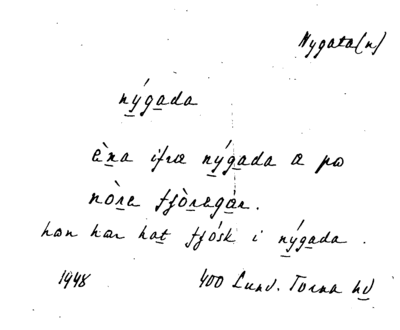 Nygata(n)
nýgada
èna ifræ nýgada æ pæ
nòre fjòregár.
hæn hær hat fjósk i nýgada.
1948 400 Lund. Torna hd